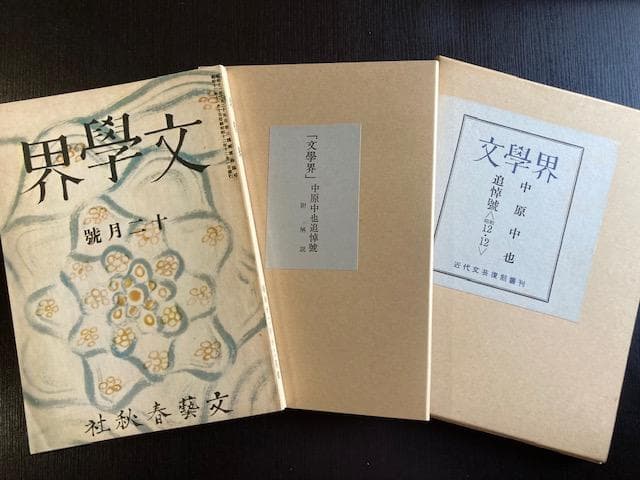 文學界
十二月號
文藝春秋社
「文學界」中原中也追悼號
附解説
文學界
中原中也
追悼號
〈昭和12・12〉
近代文芸復刻叢刊